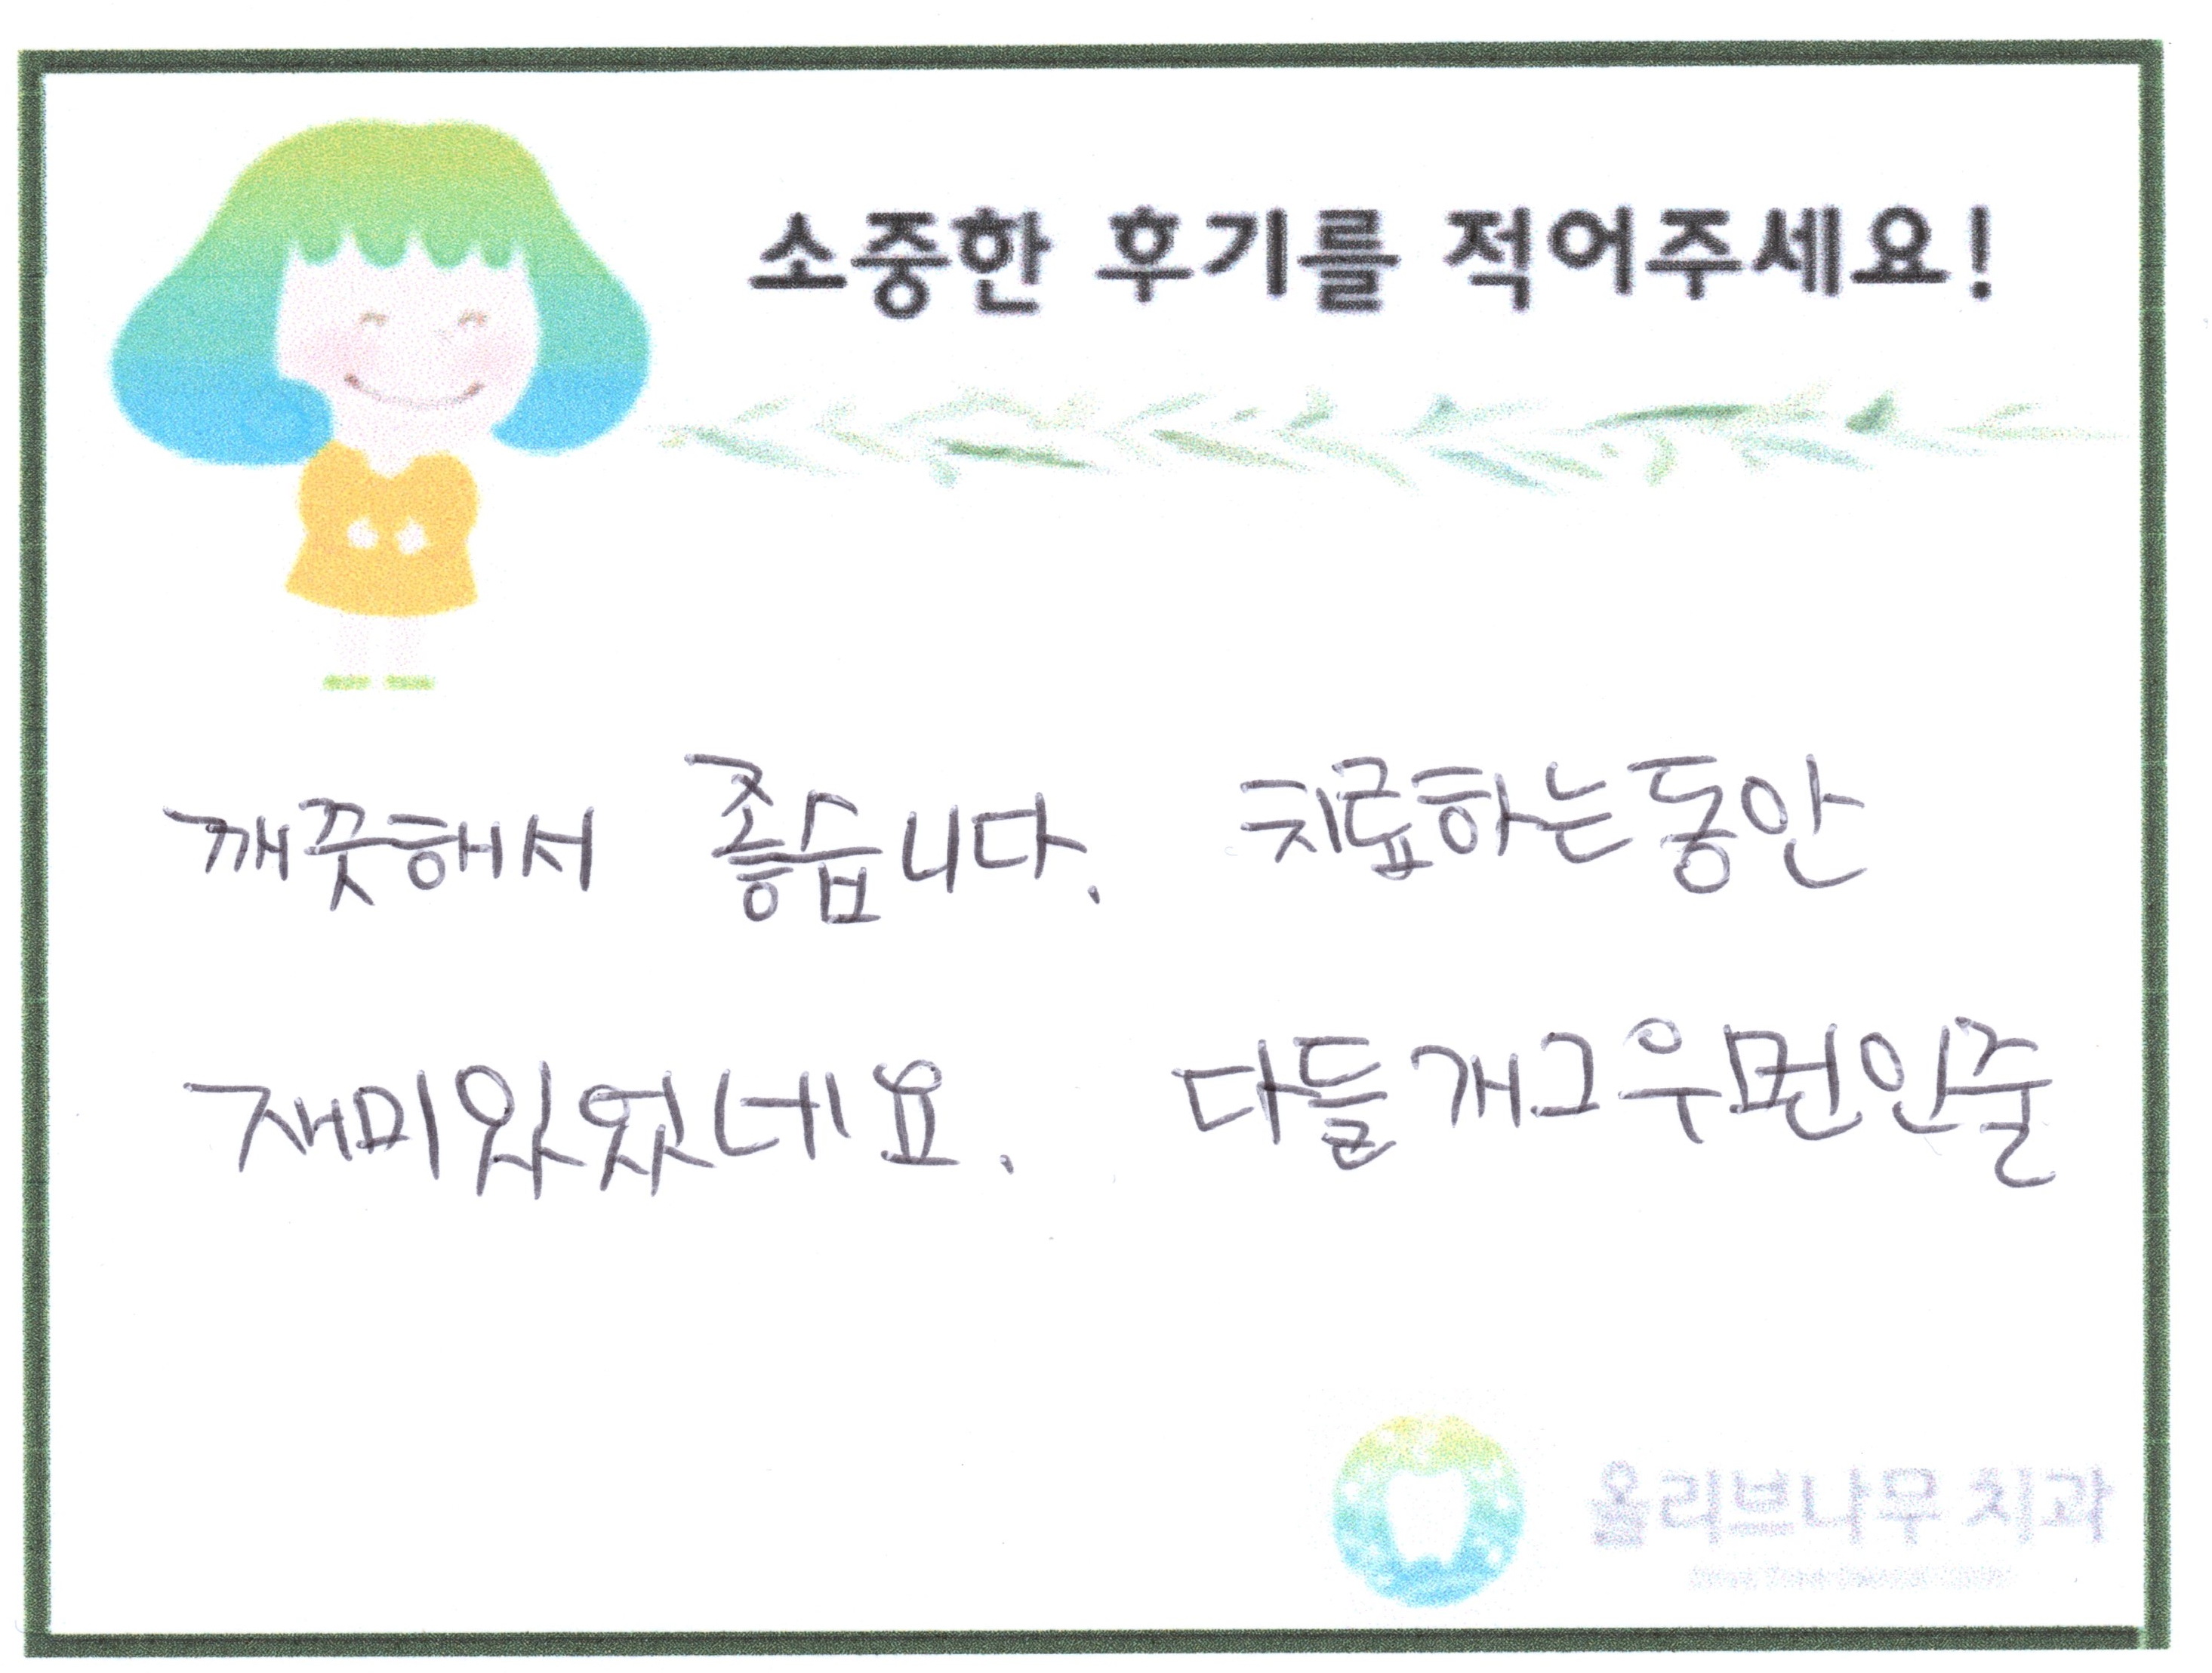 소중한 후기를 적어주세요!
깨끗해서 좋습니다. 치료하는동안
재미있었네요. 다들 개그우먼인줄
올리브나무 치과